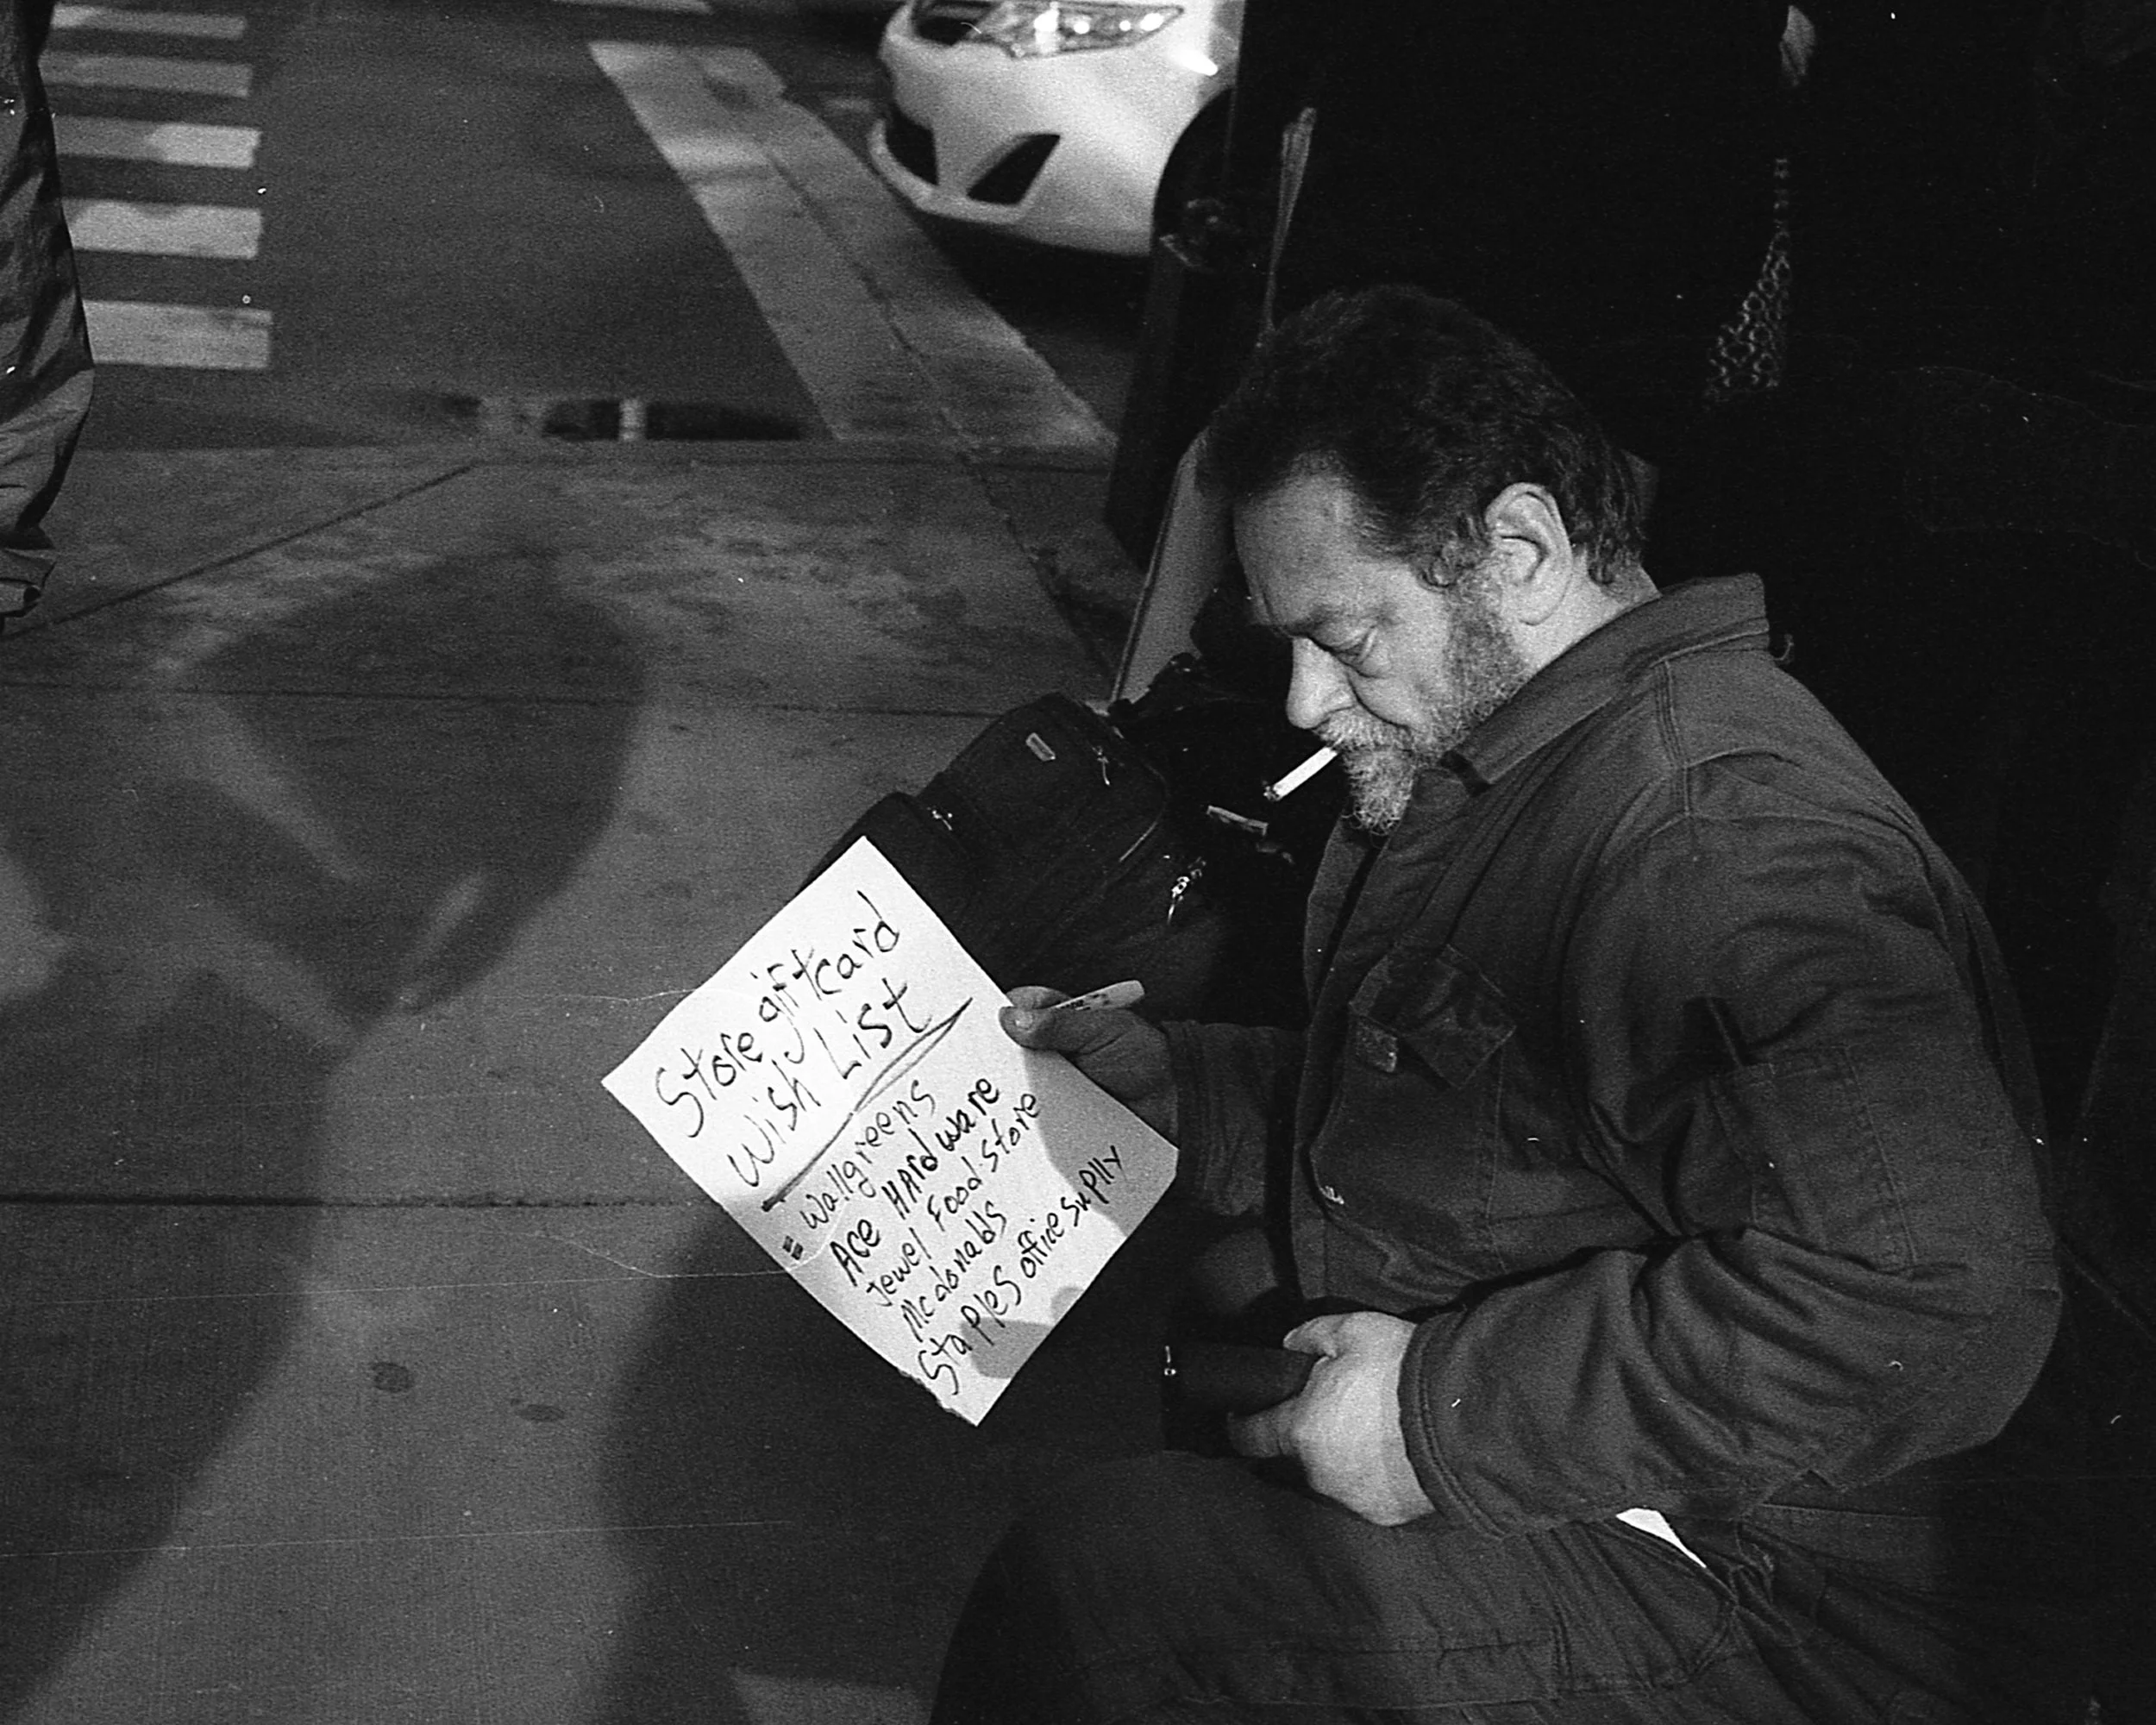 Store giftcard
Wish List
= Wallgreens
Ace HArdware
Jewel Food.store
Mcdonalds
StaPles office suplly